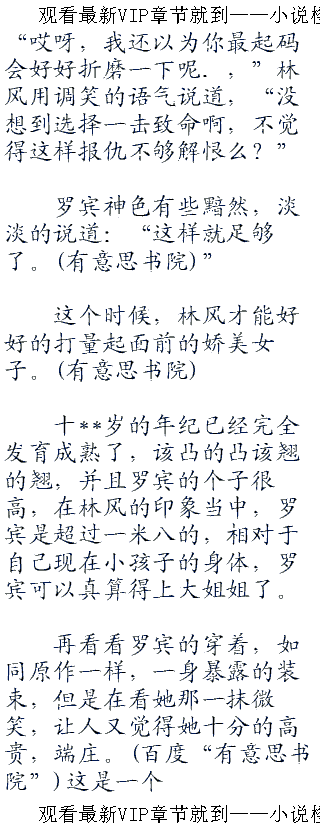 观看最新VIP章节就到——小说
“哎呀，我还以为你最起码
会好好折磨一下呢．，”林
风用调笑的语气说道，“没
想到选择一击致命啊，不觉
得这样报仇不够解恨么？”
罗宾神色有些黯然，淡
淡的说道：“这样就足够
了。(有意思书院)”
这个时候，林风才能好
好的打量起面前的娇美女
子。(有意思书院)
十**岁的年纪已经完全
发育成熟了，该凸的凸该翘
的翘，并且罗宾的个子很
高，在林风的印象当中，罗
宾是超过一米八的，相对于
自己现在小孩子的身体，罗
宾可以真算得上大姐姐了。
再看看罗宾的穿着，如
同原作一样，一身暴露的装
束，但是在看她那一抹微
笑，让人又觉得她十分的高
贵，端庄。(百度“有意思书
院”)这是一个
观看最新VIP章节就到——小说